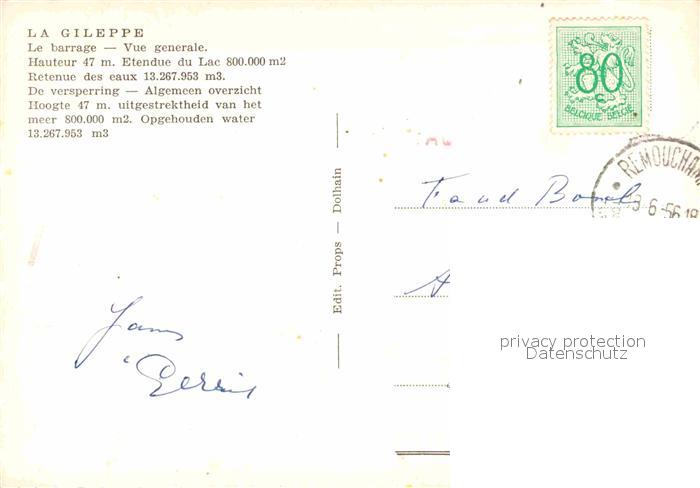 LA GILEPPE
Le barrage — Vue generale.
Hauteur 47 m. Etendue du Lac 800.000 m2
Retenue des eaux 13.267.953 m3.
De versperring — Algemeen overzicht
Hoogte 47 m. uitgestrektheid van het
meer 800.000 m2. Opgehouden water
13.267.953 m3
Edit. Props — Dolhain
80
c
BELGIQUE-BELGIË
REMOUCHAM
3-6-56 18
privacy protection
Datenschutz